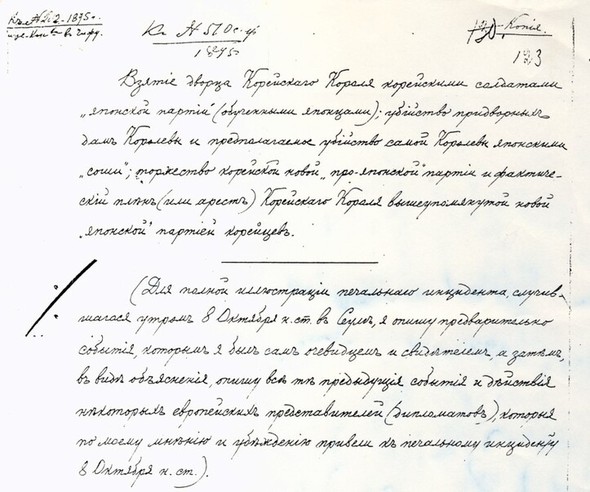 Къ № 510 с.г.
1895
Копія.
123
Взятіе дворца Корейскаго Короля корейскими солдатами
„японской партіи" (обученными японцами); убійство придворныхъ
дамъ Королевы и предполагаемое убійство самой Королевы японскими
„соши"; торжество корейской новой „про-японской" партіи и фактиче-
скій плѣнъ (или арестъ) Корейскаго Короля вышеупомянутой новой
„японской" партіей корейцевъ.
(Для полной иллюстраціи печальнаго инцидента, случив-
шагося утромъ 8 Октября н.ст. въ Сеулѣ, я опишу предварительно
событія, которымъ я былъ самъ очевидцемъ и свидѣтелемъ, а затѣмъ,
въ видѣ объясненія, опишу всѣ тѣ предыдущія событія и дѣйствія
нѣкоторыхъ европейскихъ представителей (дипломатовъ), которыя
по моему мнѣнію и убѣжденію привели къ печальному инциденту
8 Октября н. ст.).